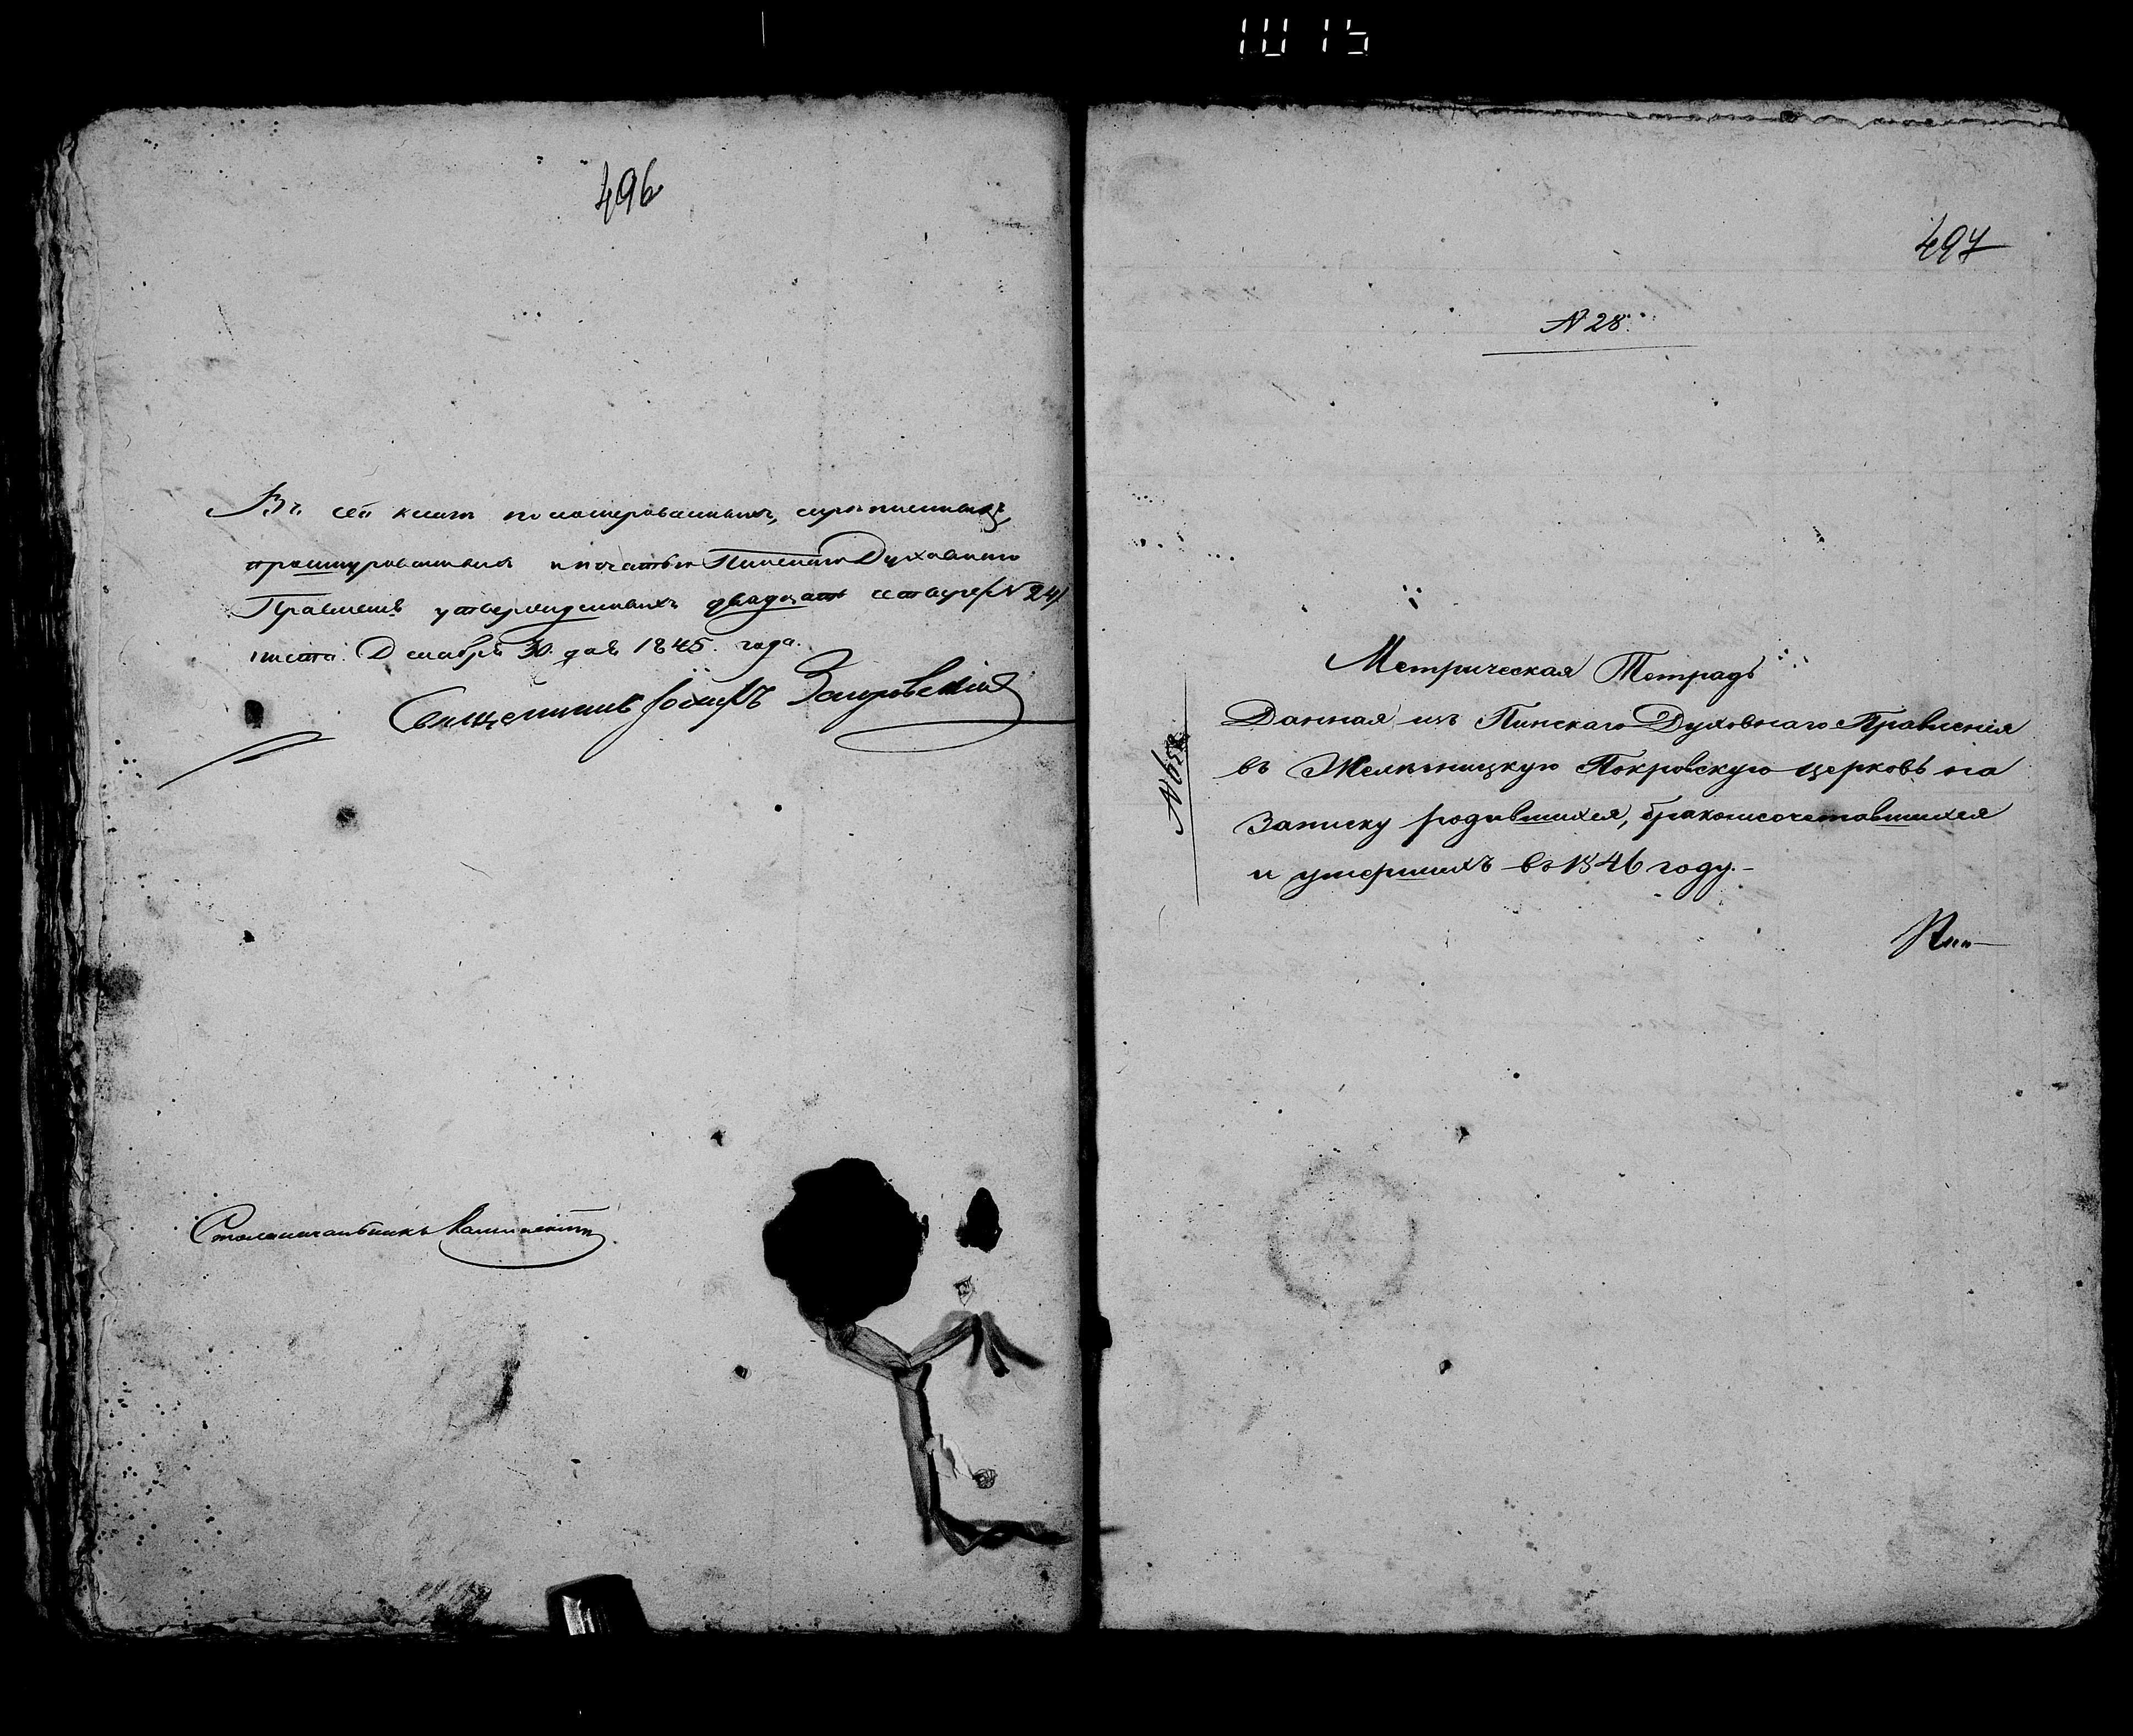 1015
496
Въ сей книгѣ нумерованныхъ, скрепленныхъ,
прошнурованныхъ и печатью Пинскаго Духовнаго
Правленія утвержденныхъ двадцать четыре /№ 24/
листа. Декабря 30. дня 1845. года.
Священникъ Іосифъ
Столоначальникъ
497
N 28.
Метрическая Тетрадь
Данная изъ Пинскаго Духовнаго Правленія
въ Покровскую церковь на
Записку родившихся, бракосочетавшихся
и умершихъ въ 1846 году.-